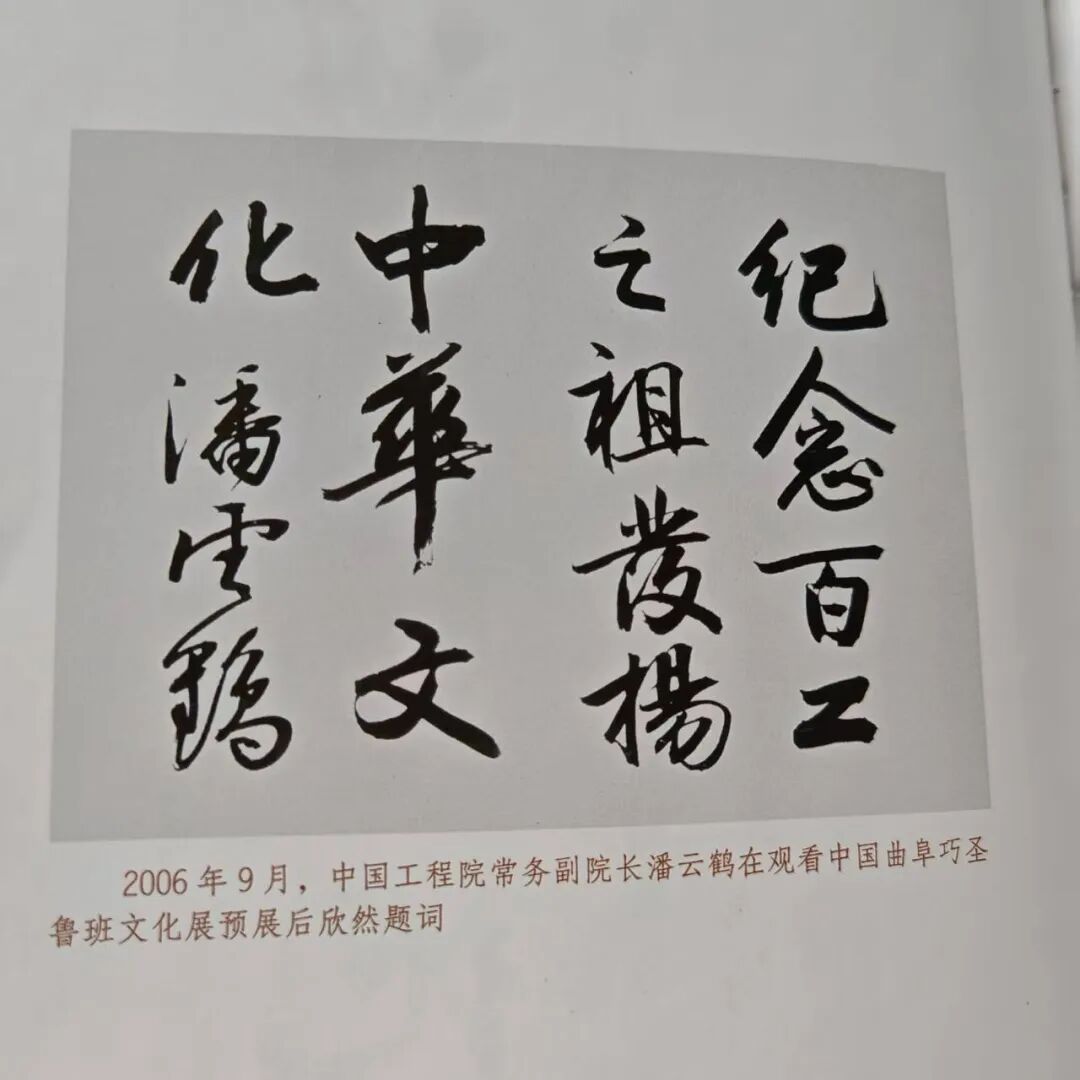 纪念百工
之祖發揚
中華文
化 潘雲鶴
2006年9月，中国工程院常务副院长潘云鹤在观看中国曲阜巧圣
鲁班文化展预展后欣然题词